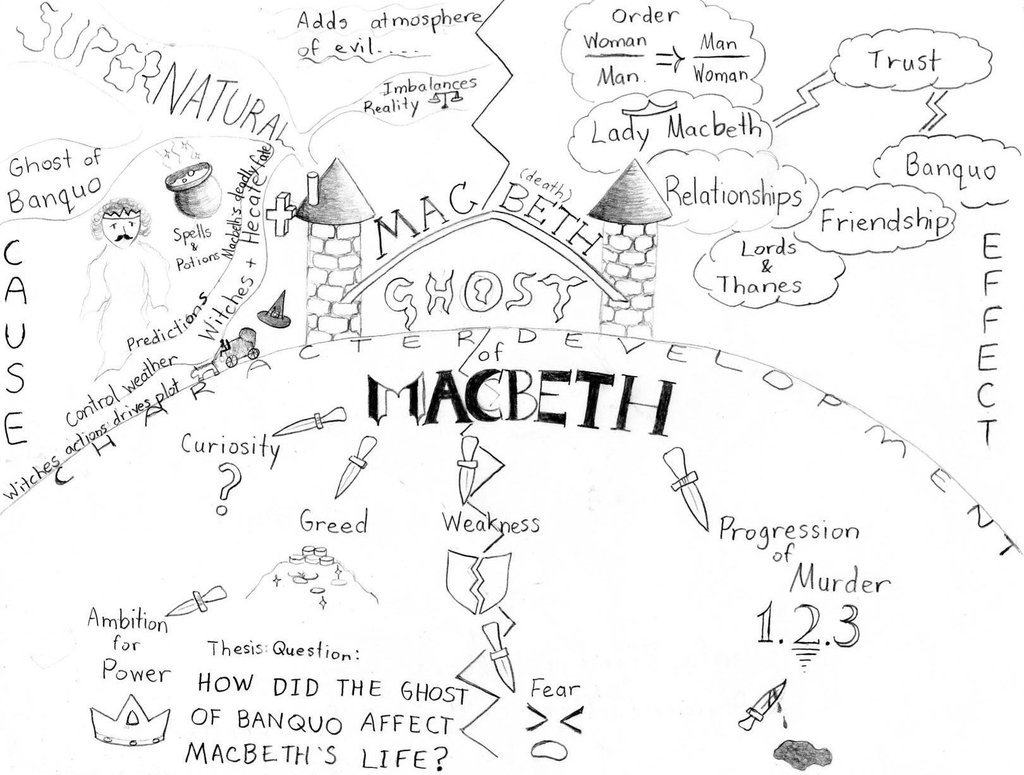 SUPERNATURAL
Adds atmosphere
of evil.....
Imbalances
Reality
Ghost of
Banquo
Spells
&
Potions
Macbeth's deadly fate
Witches + Hecate
Predictions
Control weather
Witches actions: drives plot
CAUSE
Order
Woman
Man.
⇒
Man
Woman
Lady Macbeth
Trust
Banquo
Relationships
Friendship
Lords
&
Thanes
EFFECT
MACBETH
(death)
GHOST
CHARACTER DEVELOPMENT
of
MACBETH
Curiosity
?
Greed
Weakness
Progression
of
Murder
1.2.3
Ambition
for
Power
Fear
Thesis: Question:
HOW DID THE GHOST
OF BANQUO AFFECT
MACBETH'S LIFE?